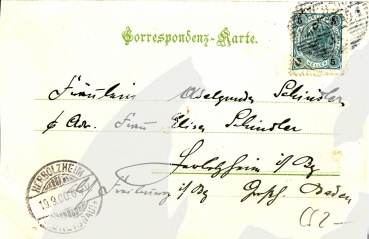 Correspondenz-Karte.
5 5
HELLER
5 5
Fräulein Adelgunde Schindler
p Adr. Frau Elise Schindler
Herbolzheim i/Bg
Freiburg i/Bg Grßh. Baden
HERBOLZHEIM
19.9.00.